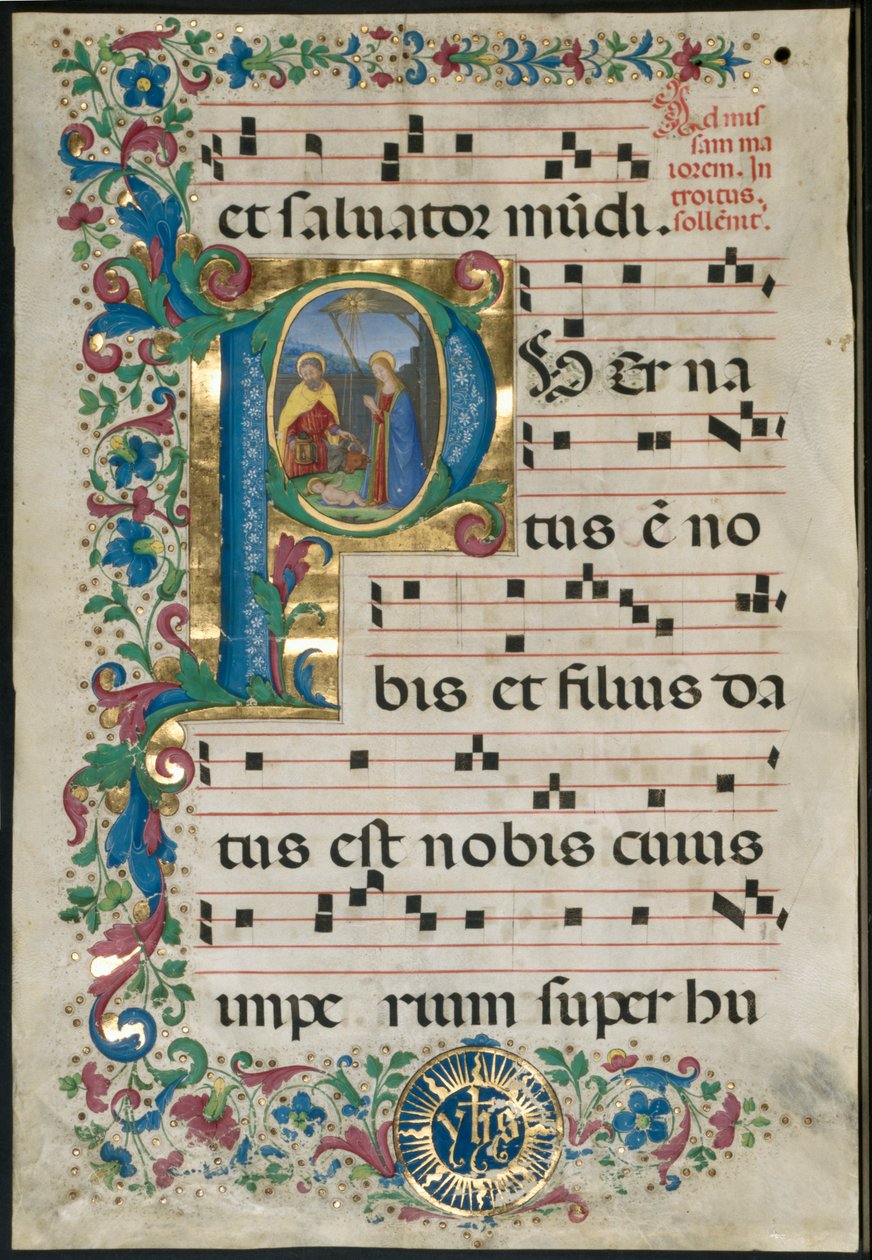 et saluator mũdi.
Ad mis
sam ma
iorem. In
troitus.
sollẽnit̃.
PUer na
tus ẽ no
bis et filius da
tus est nobis cuius
impe rium super hu
yhs